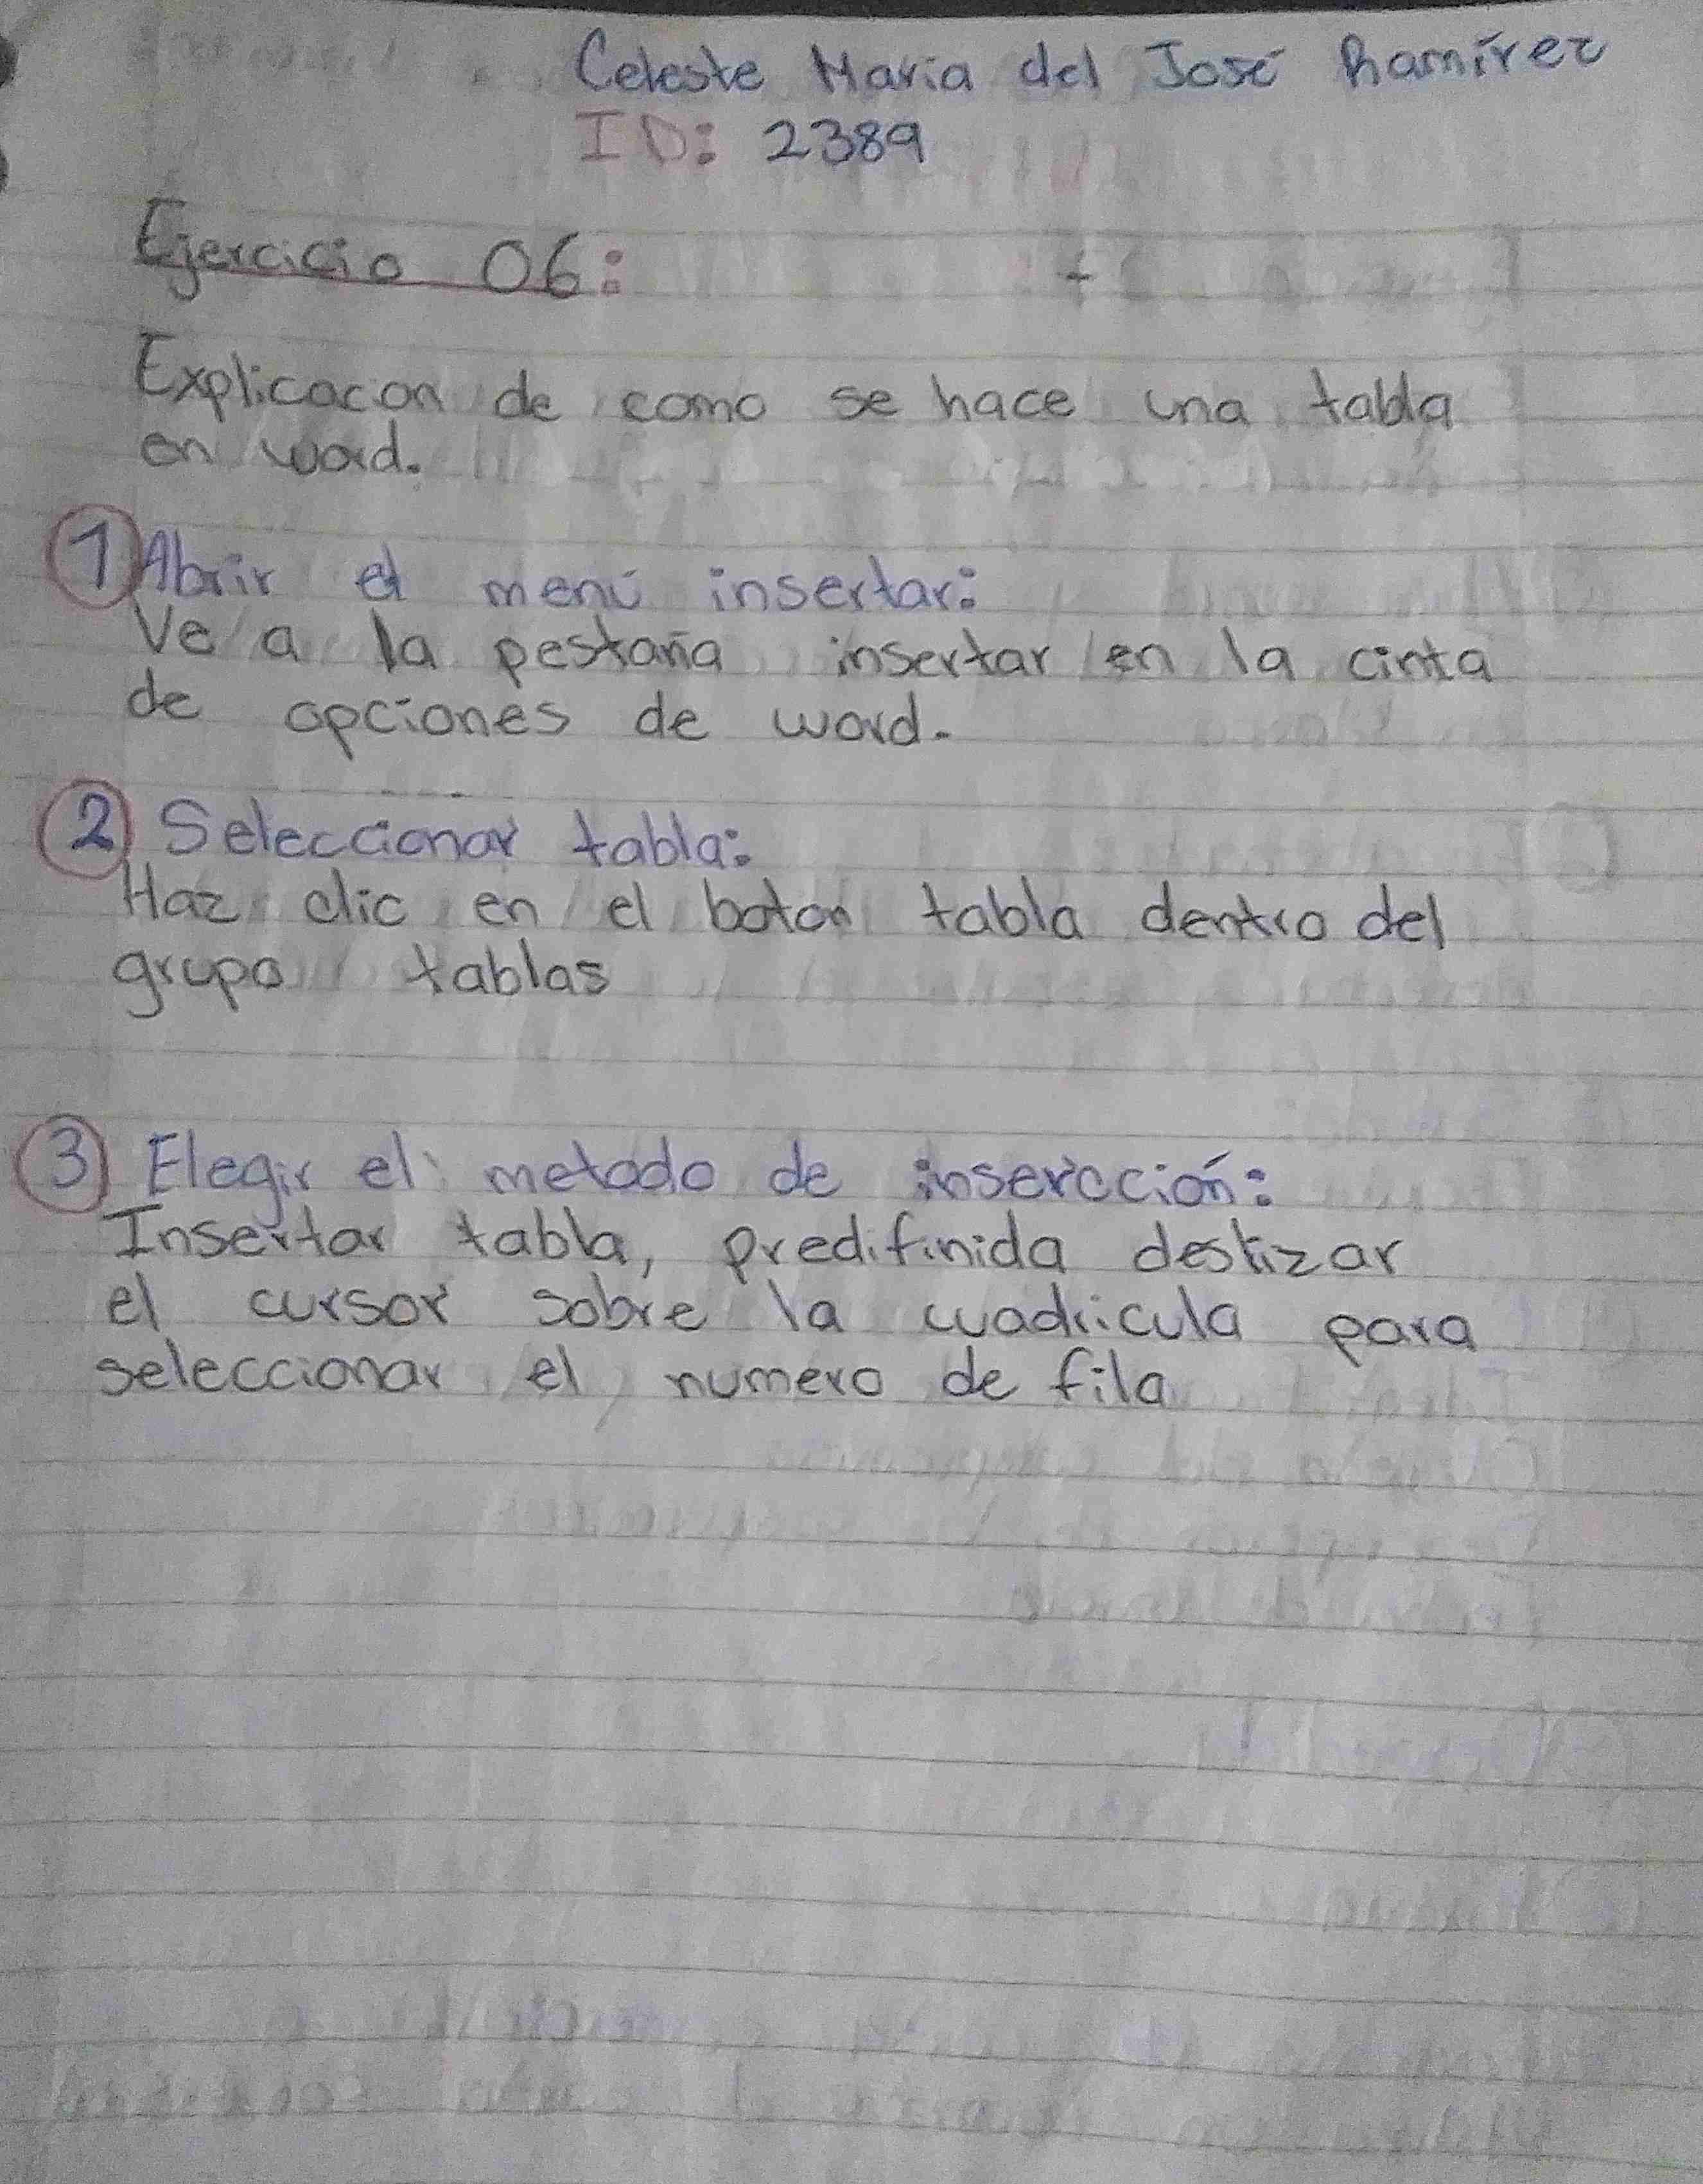 Celeste Maria del José Ramírez
ID: 2389
Ejercicio 06:
Explicacon de como se hace una tabla
en word.
1 Abrir el menú insertar:
Ve a la pestaña insertar en la cinta
de opciones de word.
2 Seleccionar tabla:
Haz clic en el boton tabla dentro del
grupo tablas
3 Elegir el metodo de insercción:
Insertar tabla, predifinida deslizar
el cursor sobre la cuadricula para
seleccionar el numero de fila